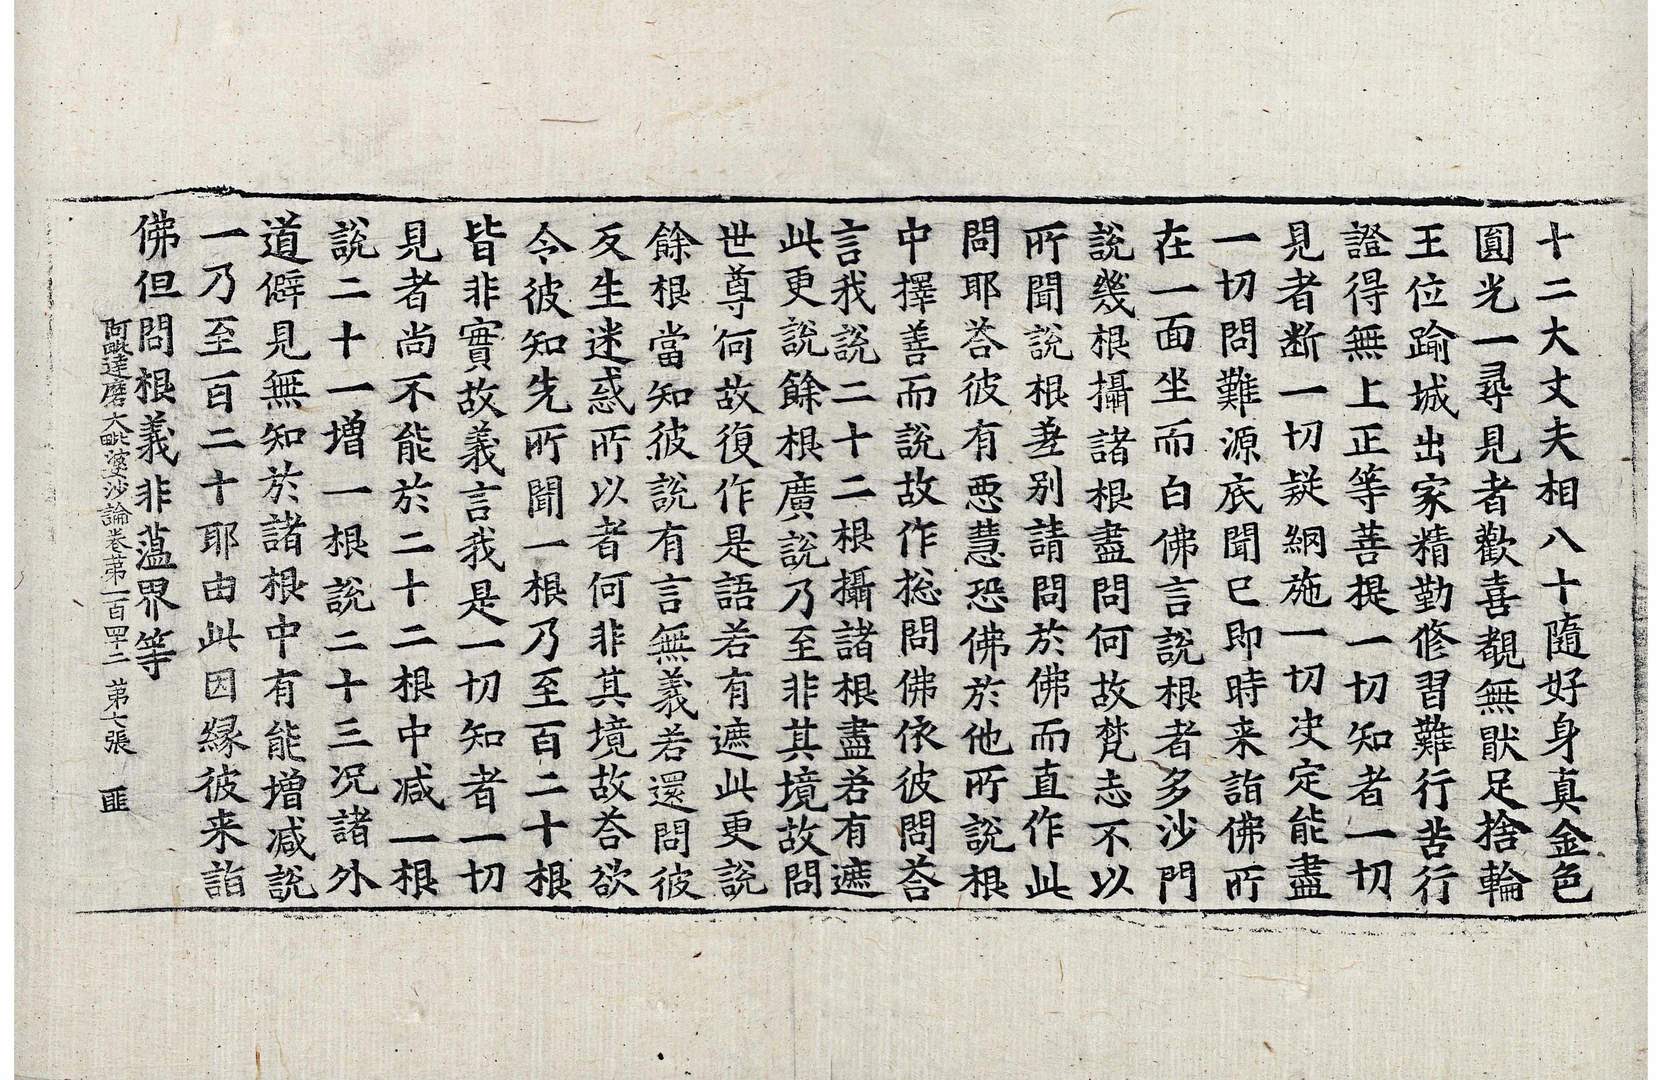 十二大丈夫相八十隨好身真金色
圓光一尋見者歡喜覩無猒足捨輪
王位踰城出家精勤修習難行苦行
證得無上正等菩提一切知者一切
見者断一切疑網施一切決定能盡
一切問難源底聞已即時来詣佛所
在一面坐而白佛言説根者多沙門
說幾根攝諸根盡問何故梵志不以
所聞説根差別請問於佛而直作此
問耶荅彼有惡慧恐佛於他所說根
中擇善而說故作捴問佛依彼問荅
言我説二十二根攝諸根盡若有遮
此更說餘根廣說乃至非其境故問
世尊何故復作是語若有遮此更説
餘根當知彼說有言無義若還問彼
反生迷惑所以者何非其境故荅欲
令彼知先所聞一根乃至百二十根
皆非實故義言我是一切知者一切
見者尚不能於二十二根中减一根
說二十一增一根說二十三况諸外
道僻見無知於諸根中有能增减說
一乃至百二十耶由此因緣彼来詣
佛但問根義非蘊界等
阿毗達磨大毗婆沙論卷第一百四十二 第七張 匪